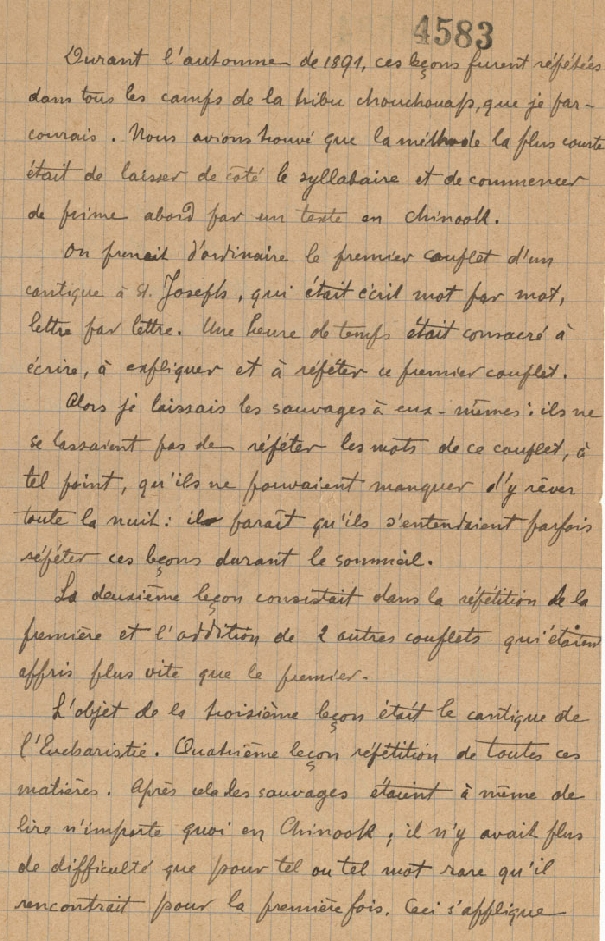 4583
Durant l'automne de 1891, ces leçons furent répétées
dans tous les camps de la tribu chouchouaps, que je par-
courais. Nous avions trouvé que la méthode la plus courte
était de laisser de côté le syllabaire et de commencer
de prime abord par un texte en chinook.
On prenait d'ordinaire le premier couplet d'un
cantique à St. Joseph, qui était écrit mot par mot,
lettre par lettre. Une heure de temps était consacré à
écrire, à expliquer et à répéter ce premier couplet.
Alors je laissais les sauvages à eux-mêmes : ils ne
se lassaient pas de répéter les mots de ce couplet, à
tel point, qu'ils ne pouvaient manquer d'y rêver
toute la nuit : il paraît qu'ils s'entendaient parfois
répéter ces leçons durant le sommeil.
La deuxième leçon consistait dans la répétition de la
première et l'addition de 2 autres couplets qui étaient
appris plus vite que le premier.
L'objet de la troisième leçon était le cantique de
l'Eucharistie. Quatrième leçon répétition de toutes ces
matières. Après cela les sauvages étaient à même de
lire n'importe quoi en Chinook ; il n'y avait plus
de difficulté que pour tel ou tel mot rare qu'il
rencontrait pour la première fois. Ceci s'applique